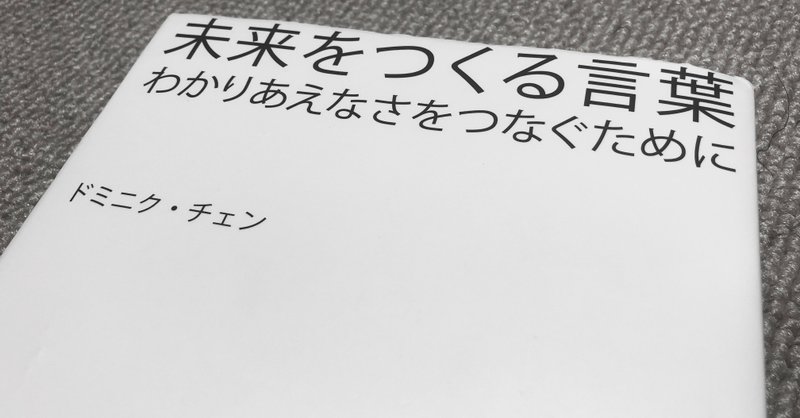 未来をつくる言葉
わかりあえなさをつなぐために
ドミニク・チェン